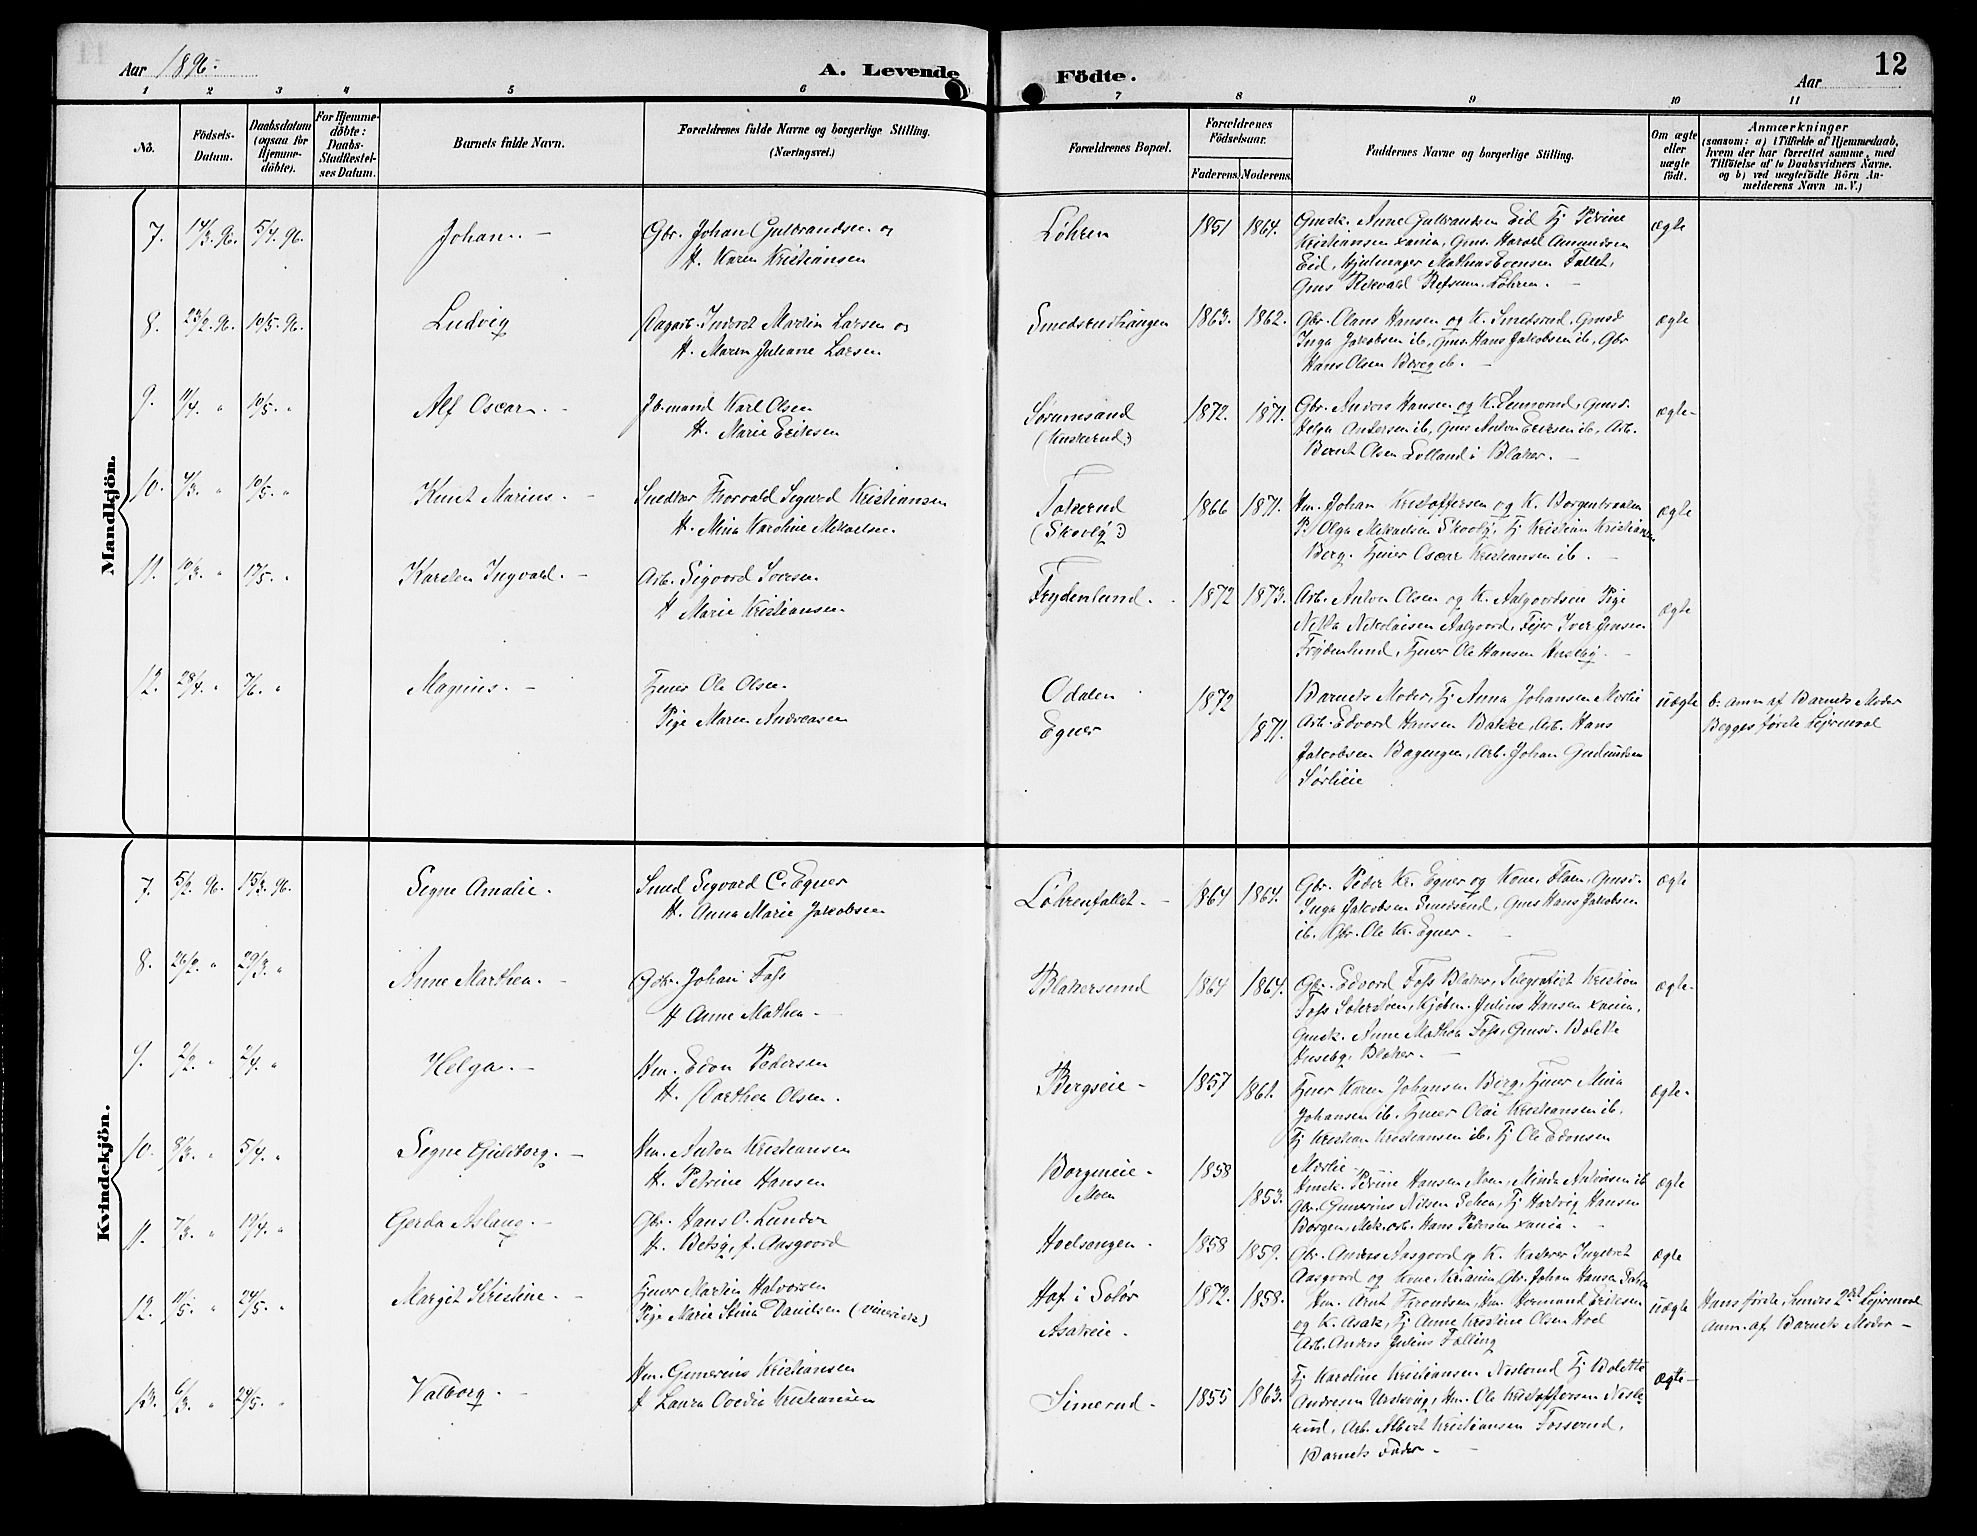 Aar 1896.
A. Levende Födte.
Aar
12
1 2 3 4 5 6 7 8 9 10 11
No.
Födsels-
Datum.
Daabsdatum
(ogsaa for
Hjemme-
döbte).
For Hjemme-
döbte:
Daabs-
Stadfæstel-
ses Datum.
Barnets fulde Navn.
Forældrenes fulde Navne og borgerlige Stilling.
(Næringsvei.)
Forældrenes Bopæl.
Forældrenes
Födselsaar.
Faderens. Moderens.
Faddernes Navne og borgerlig Stilling.
Om ægte
eller
uægte
födt.
Anmærkninger
(saasom: a) i Tilfælde af Hjemmedaab,
hvem der har forrettet samme, med
Tilföielse af to Daabsvidners Navne.
og b) ved uægtefödte Börn An-
melderens Navn m. V.)
Mandkjön.
7. 14/3. 96. 5/4. 96. Johan. –
Gbr. Johan Gulbrandsen og
H. Karen Kristiansen
Løhren 1851 1864.
Gmsk. Anne Gulbrandsen Eid Tj Petrine
Kristiansen Xania, Gms. Harald Amundsen
Eid, Hjulmager Mathias Evensen Fallet,
Gms Refsum Løhren. –
ægte
8. 23/2. 96. 10/5. 96. Ludvig
Martin Larsen og
H. Maren Juliane Larsen
Smedsrudhaugen 1863. 1862.
Gbr. Claus Hansen og K. Smedsrud, Gmsd
Inga Jakobsen ib, Gms. Hans Jakobsen ib, Gbr
Hans Olsen Berg ib. –
ægte
9. 11/4. " 10/5. " Alf Oscar. –
Jb.mand Karl Olsen
H. Marie Eriksen
Sørumsand 1872. 1871.
Gbr. Anders Hansen og K. Gmsd.
Helga Andersen ib, Gms Anton Eriksen ib, Arb.
Bernt Olsen Lolland i Blaker. –
ægte –
10. 4/3. " 10/5. " Knut Marius. –
Snedker Thorvald Sigurd Kristiansen
H. Mina Karoline Mikaelsen
Takerud
(Skovlg:) 1866 1871.
Hm. Johan Kristoffersen og K. Borgenbraaten
P. Olga Mikaelsen Skovly, Tj Kristian Kristiansen
Berg. Tjener Oscar Kristiansen ib. –
ægte
11. 10/3. " 17/5. " Karsten Ingvald. –
Arb. Sigvord Iversen
H Marie Kristiansen
Frydenlund. 1872 1873.
Arb. Anton Olsen og K. Aalgaardseie Pige
Nikolaisen Aalgaard, Iver Jensen
Frydenlund, Tjener Ole Hansen Huseby. –
ægte
12. 28/4. " 7/6. " Magnus. –
Tjener Ole Olsen.
Pige Maren Andreasen
Odalen
Egner 1872 1871.
Barnets Moder, Tj Anna Johansen Mølie
Arb. Edvard Hansen Bakke, Arb. Hans
Jakobsen Bagengen, Arb. Johan Gudmundsen
Sørlieie
uægte b. Anm af Barnets Moder
Begges første Leiermaal
Kvindekjön.
7. 5/2. 96. 15/3. 96. Signe Amalie. –
Smed Sigvard C. Egner
H. Anna Marie Jakobsen
Løhrenfallet. – 1864 1864.
Gbr. Peder Kr. Egner og Kone, Gmsd.
Inga Jakobsen Smedsrud, Gms Hans Jakobsen
ib. Gbr. Ole Kr. Egner. –
ægte
8. 26/2. " 29/3. " Anne Marthea. –
Gbr. Johan Foss
H Anne Mathea –
Blakersund 1864 1864.
Gbr. Edvard Foss Blaker, Telegrafist Kristian
Foss Kjøbm. Julius Hansen Xania,
Gmsk. Anne Mathea Foss, Gmsd. Bolette
Huseby, Blaker. –
ægte –
9. 2/2. " 2/4. " Helga. –
Hm. Edvn Pedersen
H. Marthea Olsen.
Bergseie – 1857 1861.
Tjener Karen Johansen Berg, Tjener Mina
Johansen ib. Tjener Olai Kristiansen ib.
Tj Kristian Kristiansen ib, Tj Ole Edonsen
Mørlie –
ægte –
10. 8/3. " 5/4. " Signe Gulborg. –
Hm. Anton Kristiansen
H. Petrine Hansen
Borgeneie –
Moen 1858 1853.
Hmsk. Petrine Hansen Moen, Minda Antonsen ib
Gbr. Gunerius Nilsen Tj Hartvig Hansen
Borgen, Mek. arb. Hans Petersen Xania. –
ægte
11. 7/3. " 19/4. " Gerda Aslaug. –
Gbr. Hans O. Lunder
H. Betsy, f. Aasgaard
Hoelsengen. 1858 1859.
Gbr. Anders Aasgaard og K. Ingebret
Aasgaard og Kone Xania, Gbr. Johan Hansen
ægte
12. 10/5. " 24/5. " Margit Kristine. –
Tjener Martin Halvorsen
Pige Marie Stina Danielsen
Hof i Solør
Asakeie – 1872. 1858.
Hm. Arnt Trondsen, Hm. Hermand Eriksen
og K. Asak, Tj Anne Kristine Olsen Hoel
Arb. Anders Julius Fælling
uægte Hans første, hendes 2det Leiermaal
Anm. af Barnets Moder –
13. 6/3. " 24/5. " Valborg. –
Hm. Gunerius Kristiansen
H Laura Ovedia Kristiansen
Simerud. 1855 1863.
Tj Karoline Kristiansen Tj Bolette
Andresen Urskoug, Hm. Ole Kristoffersen Nesk-
rud, Arb. Albert Kristiansen Fosserud,
Barnets Fader –
ægte –